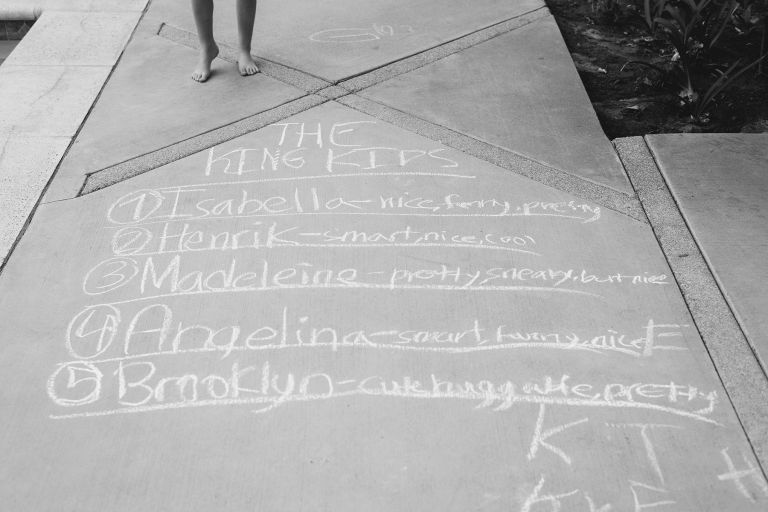 THE
KING KIDS
① Isabella - nice, funny, pretty
② Henrik - smart, nice, cool
③ Madeleine - pretty, sneaky, but nice
④ Angelina - smart, funny, nice E
⑤ Brooklyn - cute, pretty
K T